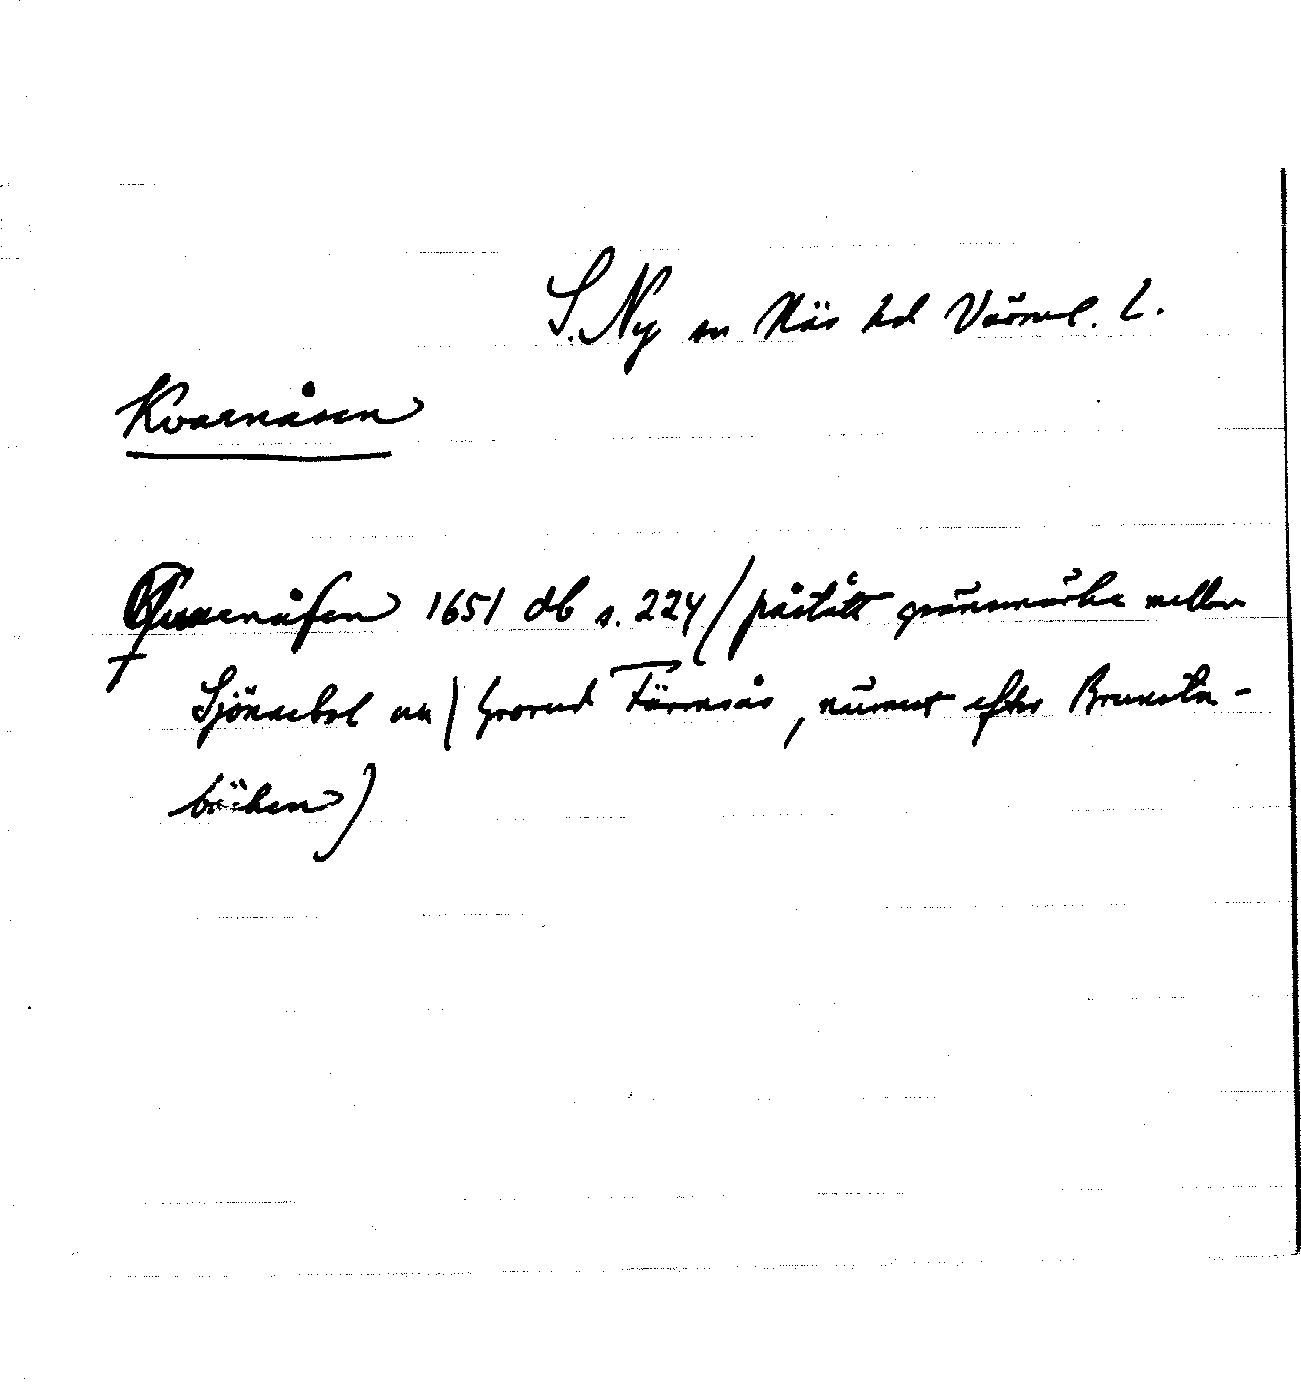 S. Ny sn Näs hd Värml. l.
Kvarnåsen
Quarnåsen 1651 db s. 224 / påstått gränsmärke mellan
Sjönnebol nn / Grorud Färmsås, närmst efter Brunsta-
bäcken)